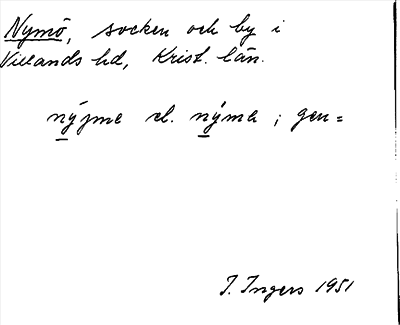 Nymö, socken och by i
Villands hd, Krist. län.
nýjme el. nýme; gen=
I. Ingers 1951